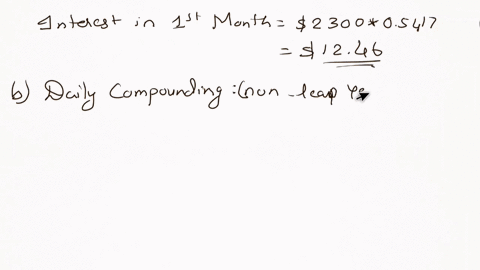 Interest in 1st Month = $2300*0.5417
= $12.46
b) Daily Compounding :(non -leap Ye